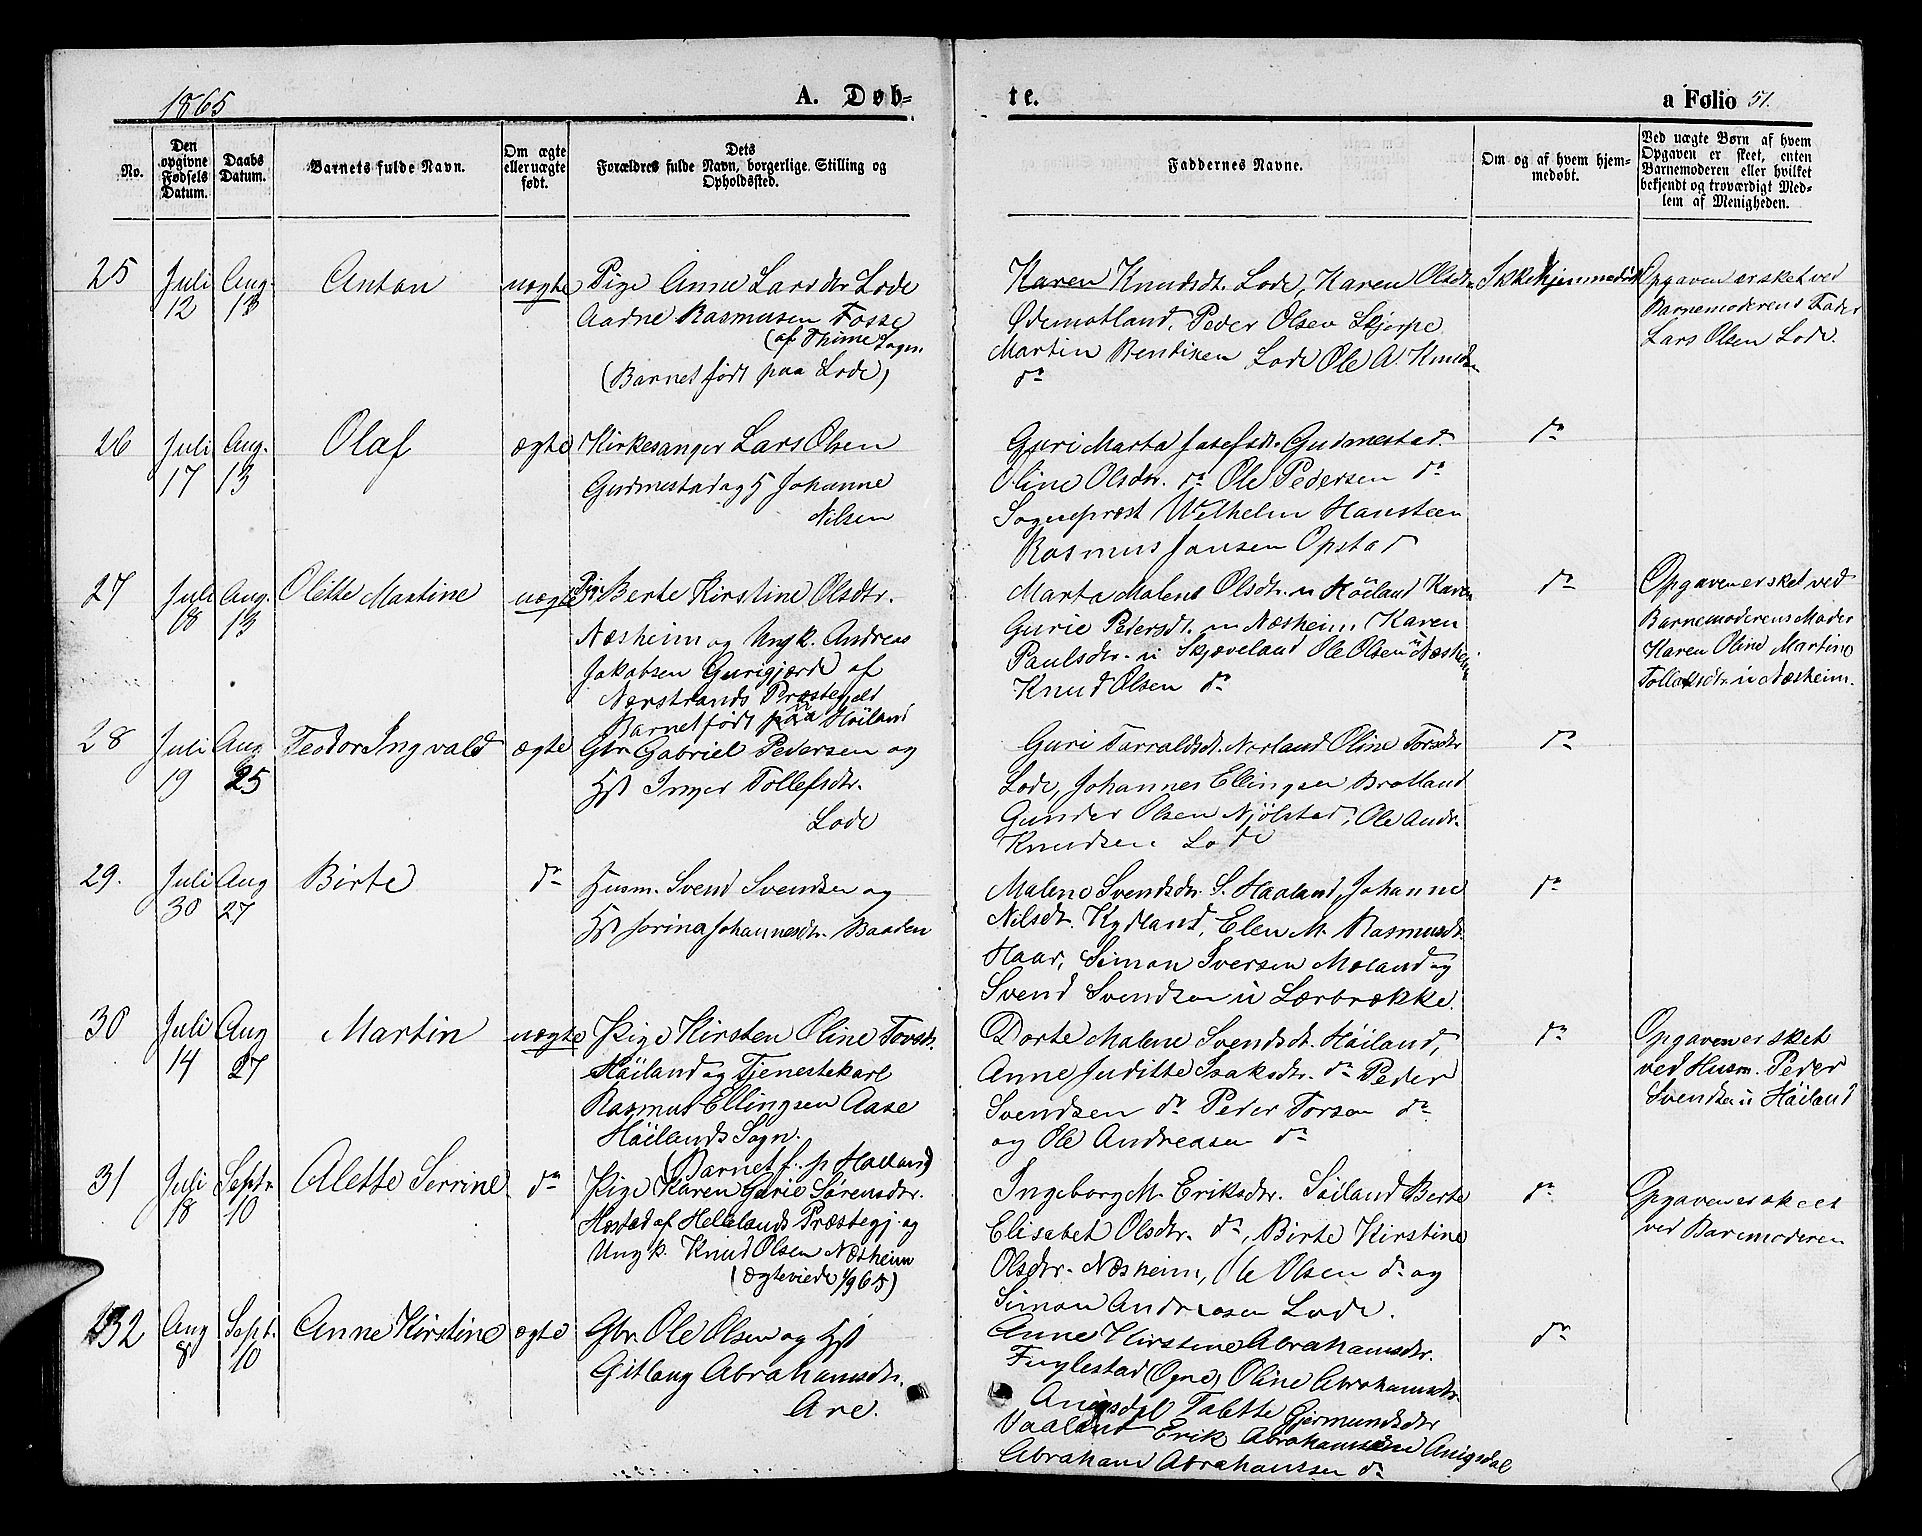 1865
A. Døb-
te.
a Folio 51.
No.
Den opgivne Fødsels Datum.
Daabs Datum.
Barnets fulde Navn.
Om ægte eller uægte født.
Dets Forældres fulde Navn, borgerlige Stilling og Opholdssted.
Faddernes Navne.
Om og af hvem hjemmedøbt.
Ved uægte Børn af hvem Opgaven er skeet, enten Barnemoderen eller hvilket bekjendt og troværdigt Medlem af Menigheden.
25
Juli 12
Aug. 13
Anton
uægte
Pige Anne Larsdtr Lode
Aadne Rasmusen Fosse
(af Thime Sogn.
(Barnet født paa Lode)
Karen Knudsdt. Lode, Karen Olsdtr
Ødemotland, Peder Olsen Skjorpe
Martin Bendiksen Lode Ole A. Knuds
do
Ikke hjemmedøbt
Opgaven er sket ved
Barnemoderens Fader
Lars Olsen Lode.
26
Juli 17
Aug. 13
Olaf
ægte
Kirkesanger Lars Olsen
Gudmestad og H Johanne
Nilsen
Guri Marta Josefsdtr. Gudmestad.
Oline Olsdtr. do Ole Pedersen do
Sogneprest Wilhelm Hansteen
Rasmus Jansen Opstad
do
27
Juli 18
Aug. 13
Olette Martine
uægte
Pige Berte Kirstine Olsdtr.
Næsheim og Ungk. Andreas
Jakobsen Gurigjærde af
Nærstrands Præstegjeld
Barnet født paa Höiland
Marta Malene Olsdtr. u Höiland Karen
Gurie Pedersdt. u Næsheim, Karen
Paulsdtr. u Skjæveland Ole Olsen u Næsheim
Knud Olsen do
do
Opgaven er sket ved
Barnemoderens Moder
Karen Oline Martine
Tollaksdtr. u Næsheim.
28
Juli 19
Aug 25
Teodor Ingvald
ægte
Gbr Gabriel Pedersen og
Hst Inger Tollefsdtr.
Lode
Guri Tarraldsdt. Norland Oline Torsdtr
Lode, Johannes Ellingsen Bratland
Gunder Olsen Njölstad, Ole Andr.
Knudsen Lode
do
29.
Juli 30
Aug 27
Birte
do
Husm. Svend Svendsen og
Hst Jorina Johannesdtr. Baaden
Malene Svendsdtr. S. Haaland, Johanne
Nilsdt. Kydland, Elen M. Rasmusdt.
Haar, Simon Iversen Moland og
Svend Svendsen u Lerbrække.
do
30
Juli 14
Aug 27
Martin
uægte
Pige Kirsten Oline Torsdtr.
Höiland og Tjenestekarl
Rasmus Ellingsen Aase
Höilands Sogn.
(Barnet f. p Höiland)
Dorte Malene Svendsdt. Höiland,
Anne Juditte Isaksdtr. do Peder
Svendsen do Peder Torsen do
og Ole Andreasen do
do
Opgaven er sket
ved Husm. Peder
Svendsen u Höiland
31
Juli 18
Septr. 10
Alette Serrine
do
Pige Karen Gurie Sörensdtr.
Hæstad af Hellelands Præstegj. og
Ungk. Knud Olsen Næsheim
(ægteviede 1/9 65)
Ingeborg M. Eriksdtr. Söiland Berte
Elisabet Olsdtr. do, Birte Kirstine
Olsdtr. Næsheim, Ole Olsen do og
Simon Andreasen Lode.
do
Opgaven er skeet
ved Barnemoderen
32
Aug 8
Sept. 10
Anne Kirstine
ægte
Gbr. Ole Olsen og Hst
Gitlaug Abrahamsdtr.
Are.
Anne Kirstine Abrahamsdtr.
Fuglestad (Ogne) Oline Abrahamsdtr.
Anigsdal Talette Gjermundsdtr
Vaaland Erik Abrahamsen Anigsdal
Abraham Abrahamsen do
do